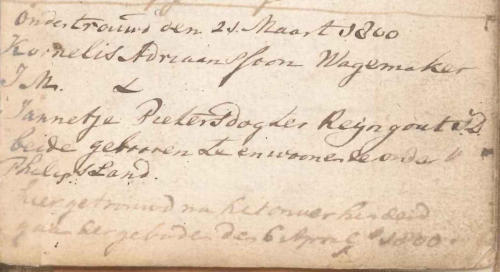 Ondertrouwd den 21 Maart 1800
Kornelis Adriaanssoon Wagemaker
J M. &
Jannetje Pieters Dogter Reijngout J: D
beide gebooren te en woonende onder
Philips Land.
hier getrouwd na het onverhinderd
gaan der geboden den 6 April 1800